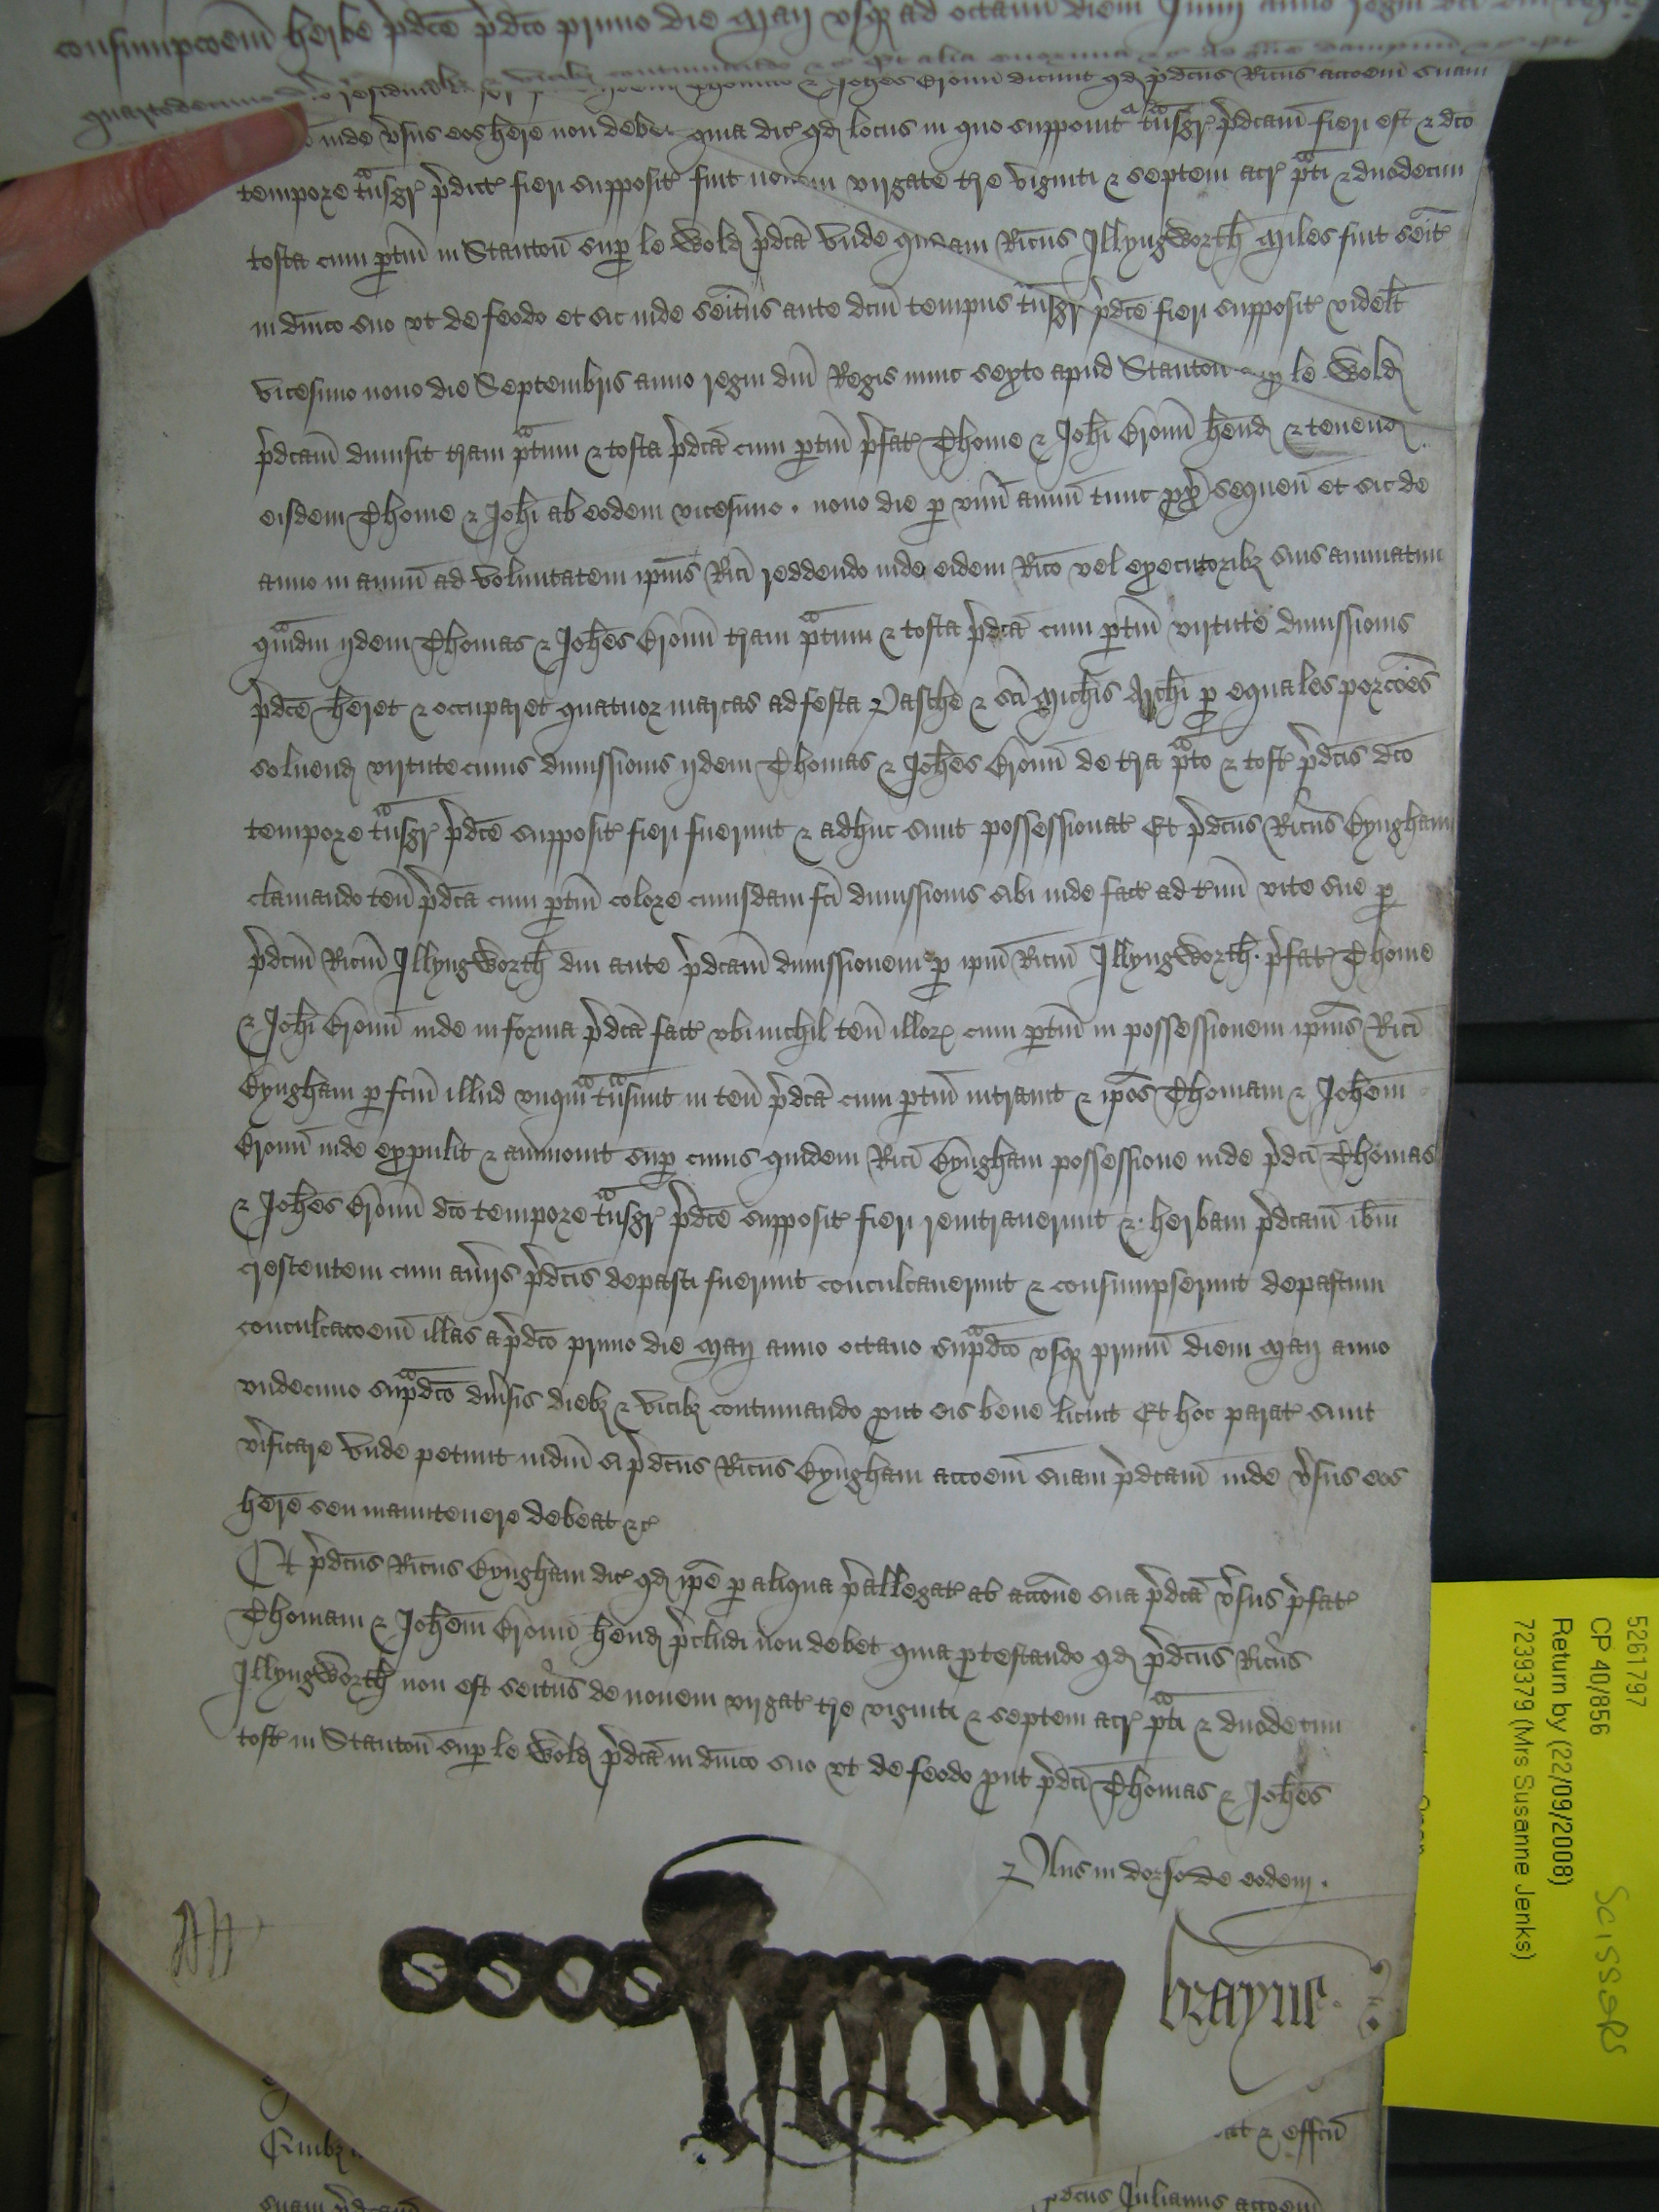 consumpcoem herbe pdce pdco primo die Maij usq ad octauu diem Junij anno regni dci dni Regis
quartodecimo
inde vsus eos here non debet quia dic qd locus in quo supponit tnsgr pdcam fieri est & dco
tempore tnsgr pdict fieri supposit fuit nouem virgate tre viginti & septem acr pti & duodecim
tofta cum ptin in Stanton sup le Wold pdca unde quidam Ricus Jllyngworth Miles fuit seit
in dnico suo ut de feodo et sic inde seitus ante dcm tempus tnsgr pdce fieri supposit videlt
vicesimo nono die Septembris anno regni dni Regis nunc sexto apud Stanton sup le Wold
pdcam dimisit tram ptum & tofta pdca cum ptin pfat Thome & Johi Crom hend & tenend
eisdem Thome & Johi ab eodem vicesimo nono die p unu annu tunc px sequen et sic de
anno in annu ad voluntatem ipius Rici reddendo inde eidem Rico vel executoribz suis annuatim
qmdiu ijdem Thomas & Johes Crom tram ptum & tofta pdca cum ptin virtute dimissionis
pdce heret & occuparet quatuor marcas ad festa Pasche & sci Michis Archi p equales porcoes
soluend virtute cuius dimissionis ijdem Thomas & Johes Crom de tra pto & toft pdcis dco
tempore tnsgr pdce supposit fieri fuerunt & adhuc sunt possessionat Et pdcus Ricus Eyngham
clamando ten pdca cum ptin colore cuiusdam fci dimissionis sibi inde fact ad tmi vite sue p
pdcm Ricm Jllyngworth diu ante pdcam dimissionem p ipm Ricm Jllyngworth pfat Thome
& Johi Crom inde in forma pdca fact ubi nichil ten illor cum ptin in possessionem ipius Rici
Eyngham p fcm illud unqm tnsiuit in ten pdca cum ptin intrauit & ipos Thomam & Johem
Crom inde expulit & ammouit sup cuius quidem Rici Eyngham possessione inde pdci Thomas
& Johes Crom dco tempore tnsgr pdce supposit fieri reintrauerunt & herbam pdcam ibm
crescentem cum auijs pdcis depasti fuerunt conculcauerunt & consumpserunt depastum
conculcacoem illas a pdco primo die Maij anno octauo supdco usq primu diem Maij anno
undecimo supdco diusis diebz & vicibz continuando put eis bene licuit Et hoc parat sunt
vificare Unde petunt iudm si pdcus Ricus Eyngham accoem suam pdcam inde vsus eos
here seu manutenere debeat &c
Et pdcus Ricus Eyngham dic qd ipe p aliqua pallegat ab accone sua pdca vsus pfat
Thomam & Johem Crom hend pcludi non debet quia ptestando qd pdcus Ricus
Jllyngworth non est seitus de nouem virgat tre viginti & septem acr pti & duodecim
toft in Stanton sup le Wold pdca in dnico suo ut de feodo put pdci Thomas & Johes
Plus in dorso de eodem
brayne
&  effcu
suam pdcam
pdcus Julianus accoem
5261797
CP 40/856
Return by (22/09/2008)
7239379 (Mrs Susanne Jenks)
Scissors